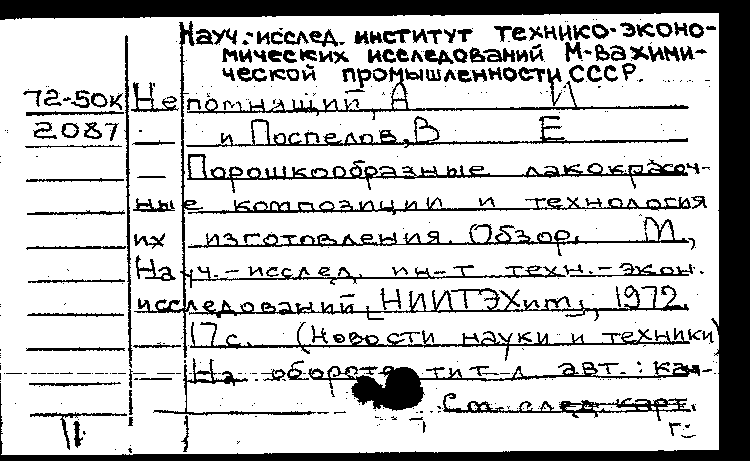 Науч.-исслед. институт технико-эконо-
мических исследований М-ва хими-
ческой промышленности СССР.
72-50к Непомнящий, А И
2087 и Поспелов, В Е
Порошкообразные лакокрасоч-
ные композиции и технология
их изготовления. Обзор. М.,
Науч.-исслед. ин-т техн.-экон.
исследований [НИИТЭХим], 1972
17с. (Новости науки и техники)
На обороте тит л авт.: кан-
См. след. карт.